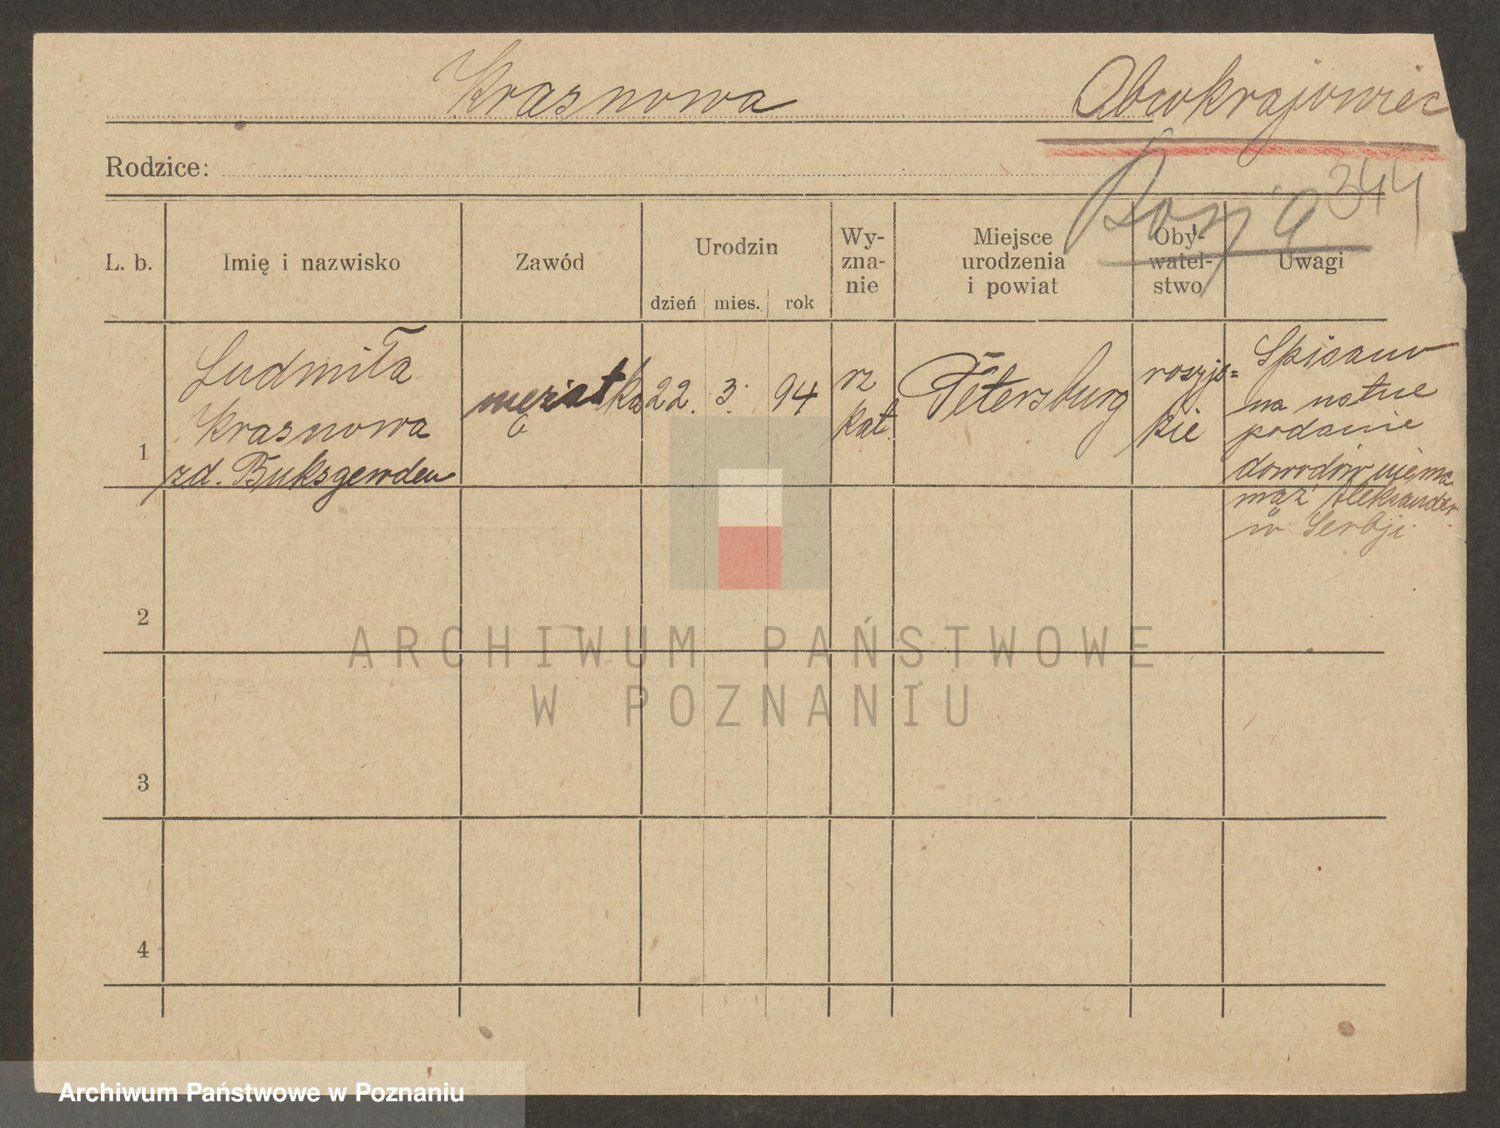 Krasnowa
Obcokrajowiec
Rosja 344
Rodzice:
L. b.
Imię i nazwisko
Zawód
Urodzin
dzień mies. rok
Wy-
zna-
nie
Miejsce
urodzenia
i powiat
Oby-
watel-
stwo
Uwagi
1
Ludmiła
Krasnowa
zd. Buksgewden
mężatka
22. 3. 94
rz
kat.
Petersburg
rosyjs=
kie
Spisano
na ustne
podanie
dowodów niema
mąż Aleksander
w Serbji.
2
3
4
ARCHIWUM PAŃSTWOWE
W POZNANIU
Archiwum Państwowe w Poznaniu